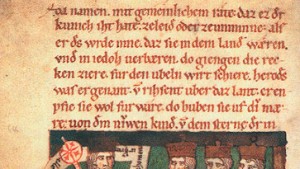 da namen. mit gemeinlichem rate. daz er dē
kunich iht hate. zeleid oder ze unminne. alſ
er dſ wrde inne. daz ſie in dem land waren.
vnd in iedoch verberen. do giengen die rec
ken ziere. fur den ubeln wirt ſchiere. herodſ
waſ er genant. er rihſent uber daz lant. er en
pfie ſie wol fur ware. do huben ſie uf dſ mæ
re. von dem niwen kind. vō dem ſterne